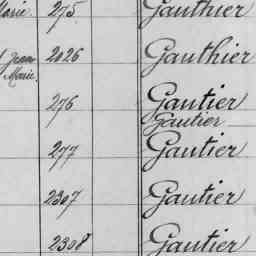 Marie 275 Gauthier
Jean 2026 Gauthier
Marie
276 Gautier
Gautier
277 Gautier
2307 Gautier
2308 Gautier